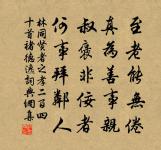 至老能無倦
真為善事親
叔褒非佞者
何事拜鄰人
林同賢者之孝二百四
十首褚德逸詞典網集